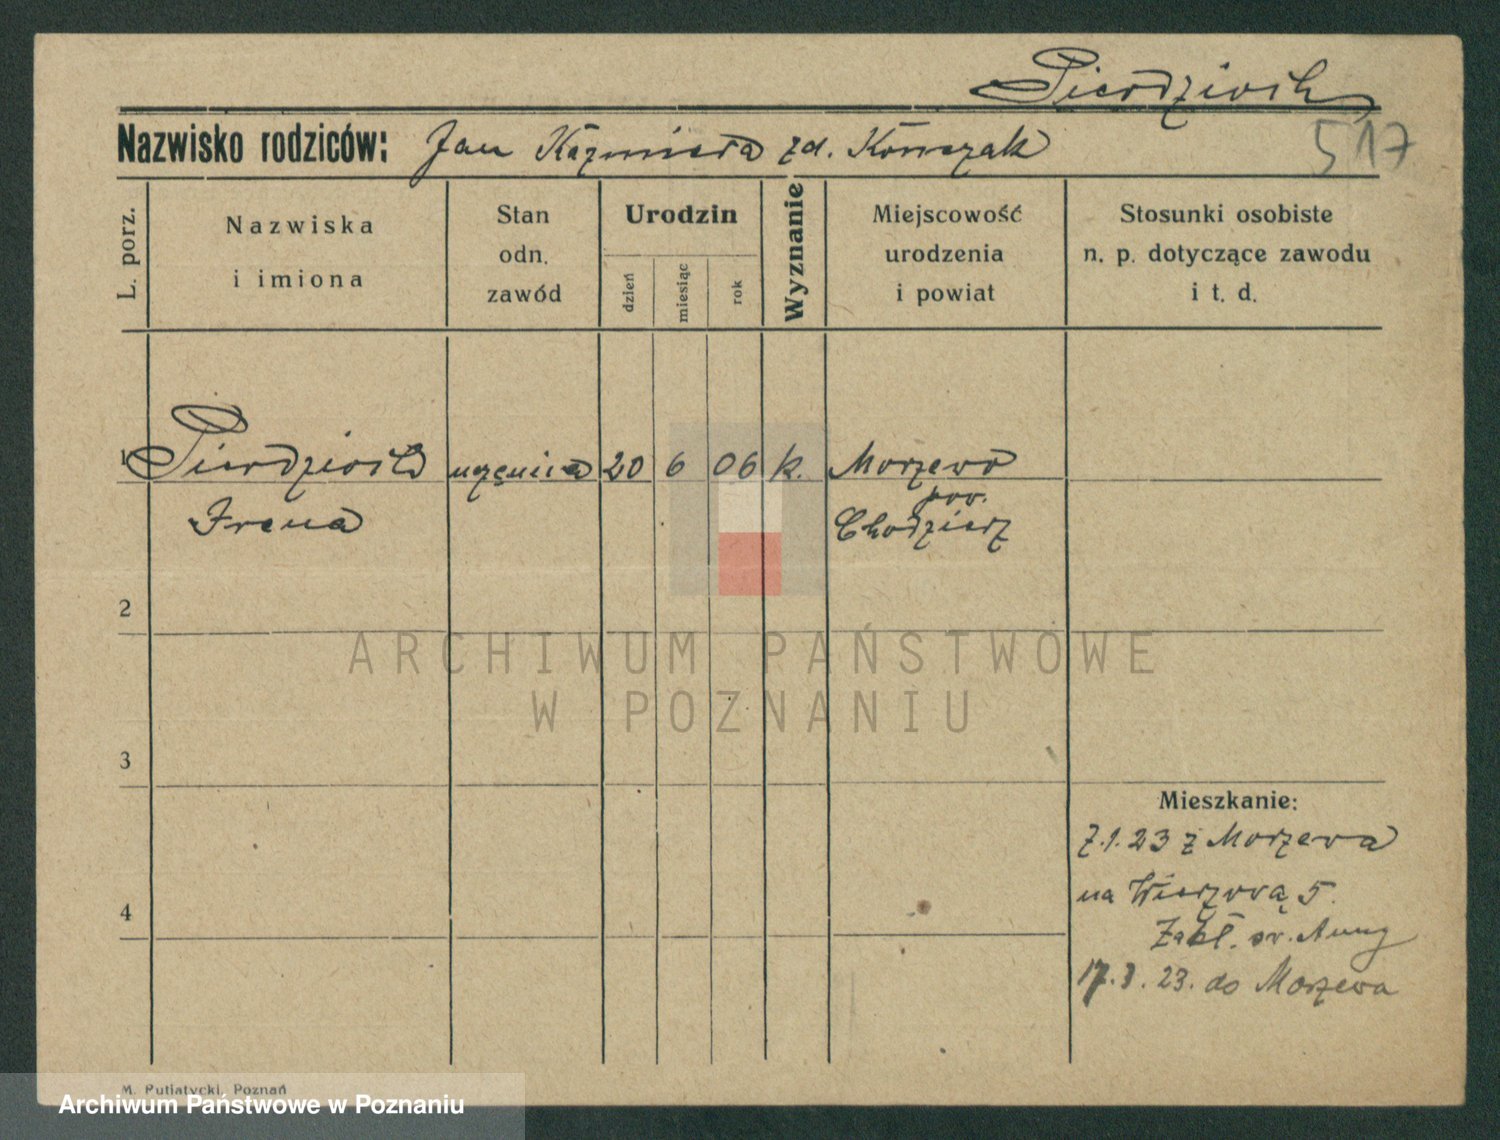 Pierdzioch
Nazwisko rodziców: Jan Kazmiera zd. Konczak
517
L. porz.
Nazwiska i imiona
Stan odn. zawód
Urodzin
dzień
miesiąc
rok
Wyznanie
Miejscowość urodzenia i powiat
Stosunki osobiste n. p. dotyczące zawodu i t. d.
1 Pierdzioch uczenica 20 6 06 k. Morzewo
Irena pow. Chodzierz
2
ARCHIWUM PAŃSTWOWE
W POZNANIU
3
Mieszkanie:
7.1.23 z Morzewa
na Wierzową 5.
4
Zakł. św. Anny
17.3.23. do Morzewa
M. Putiatycki, Poznań
Archiwum Państwowe w Poznaniu